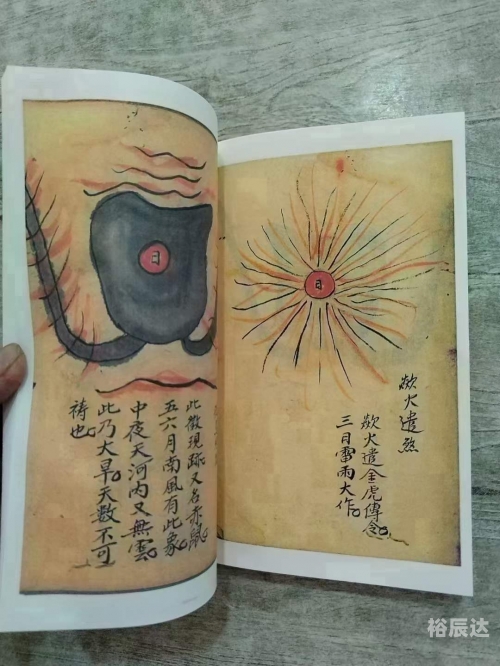 日
欻火遣煞
欻火遣金虎傳令
三日雷雨大作
日
此徵現跡又名赤鼠
五六月南風有此象
中夜天河內又無雲
此乃大旱天數不可
禱也
裕辰达